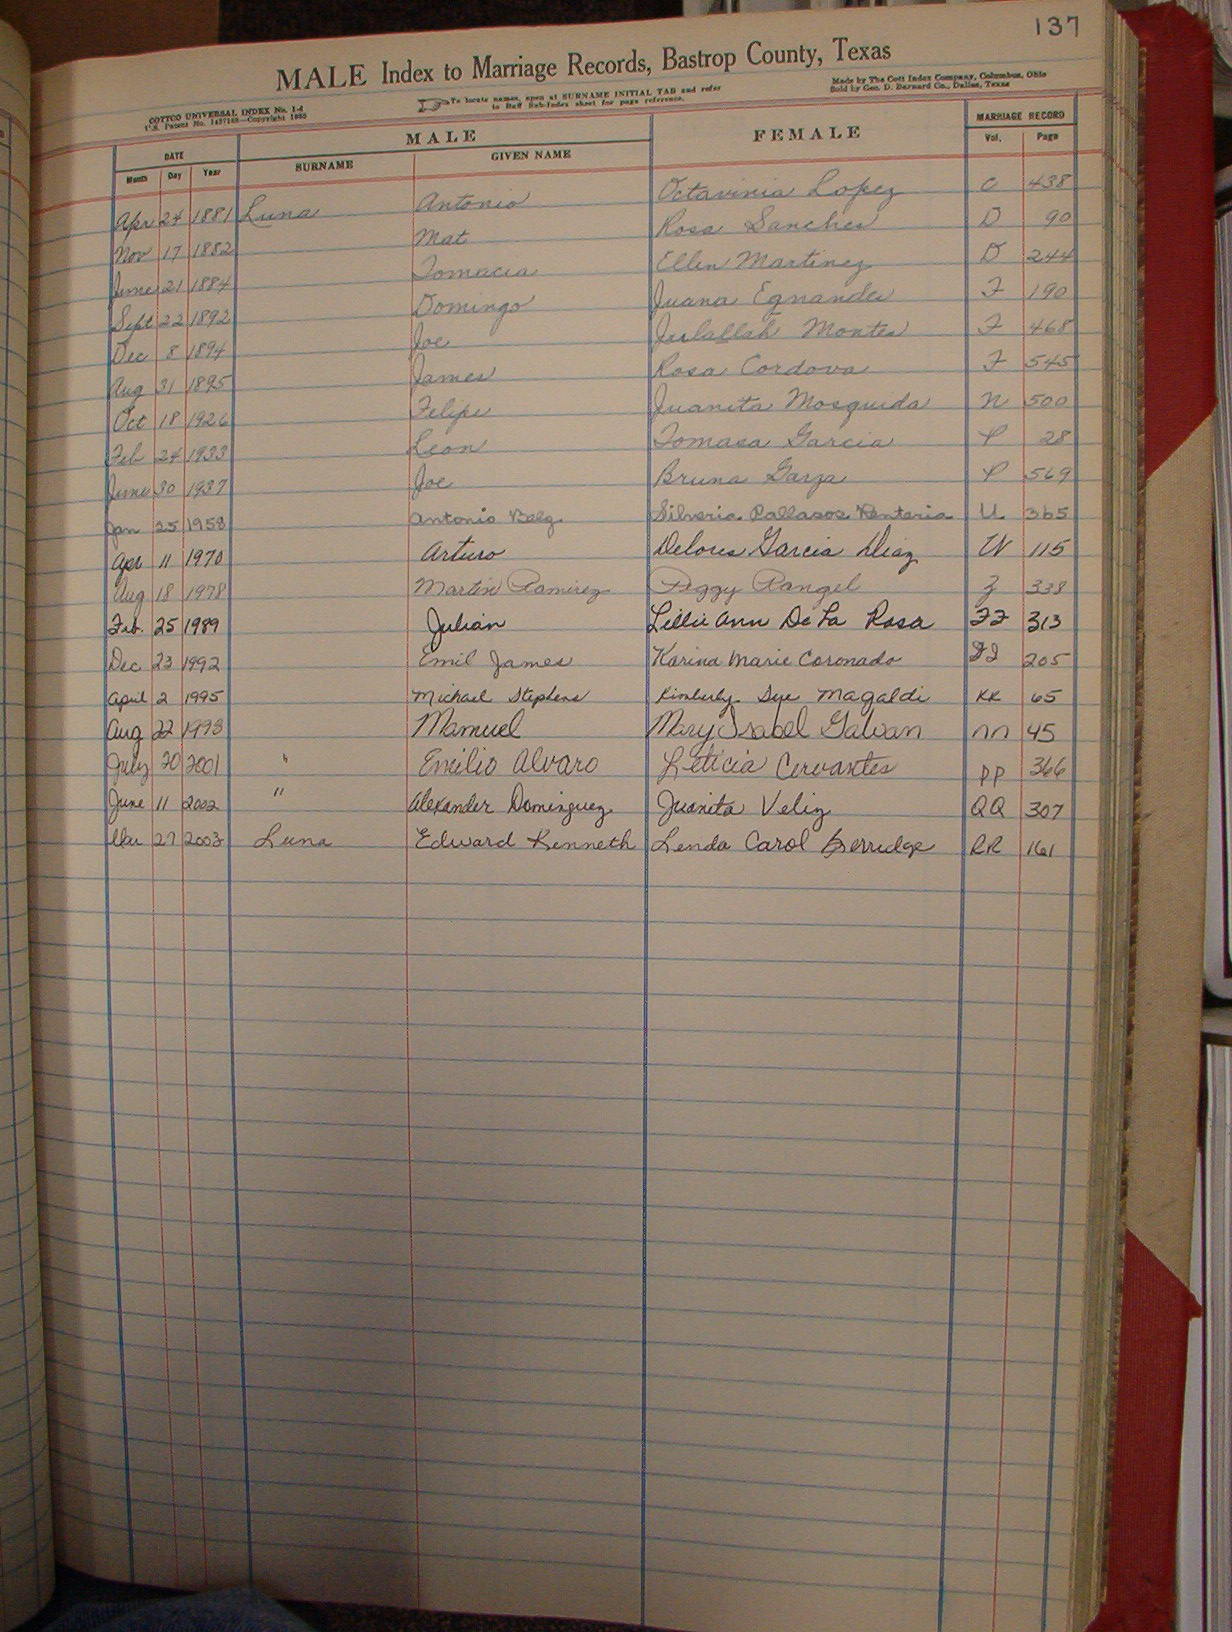 137
MALE Index to Marriage Records, Bastrop County, Texas
COTTCO UNIVERSAL INDEX No. 1-d
To locate names, open at SURNAME INITIAL TAB and refer
to Buff Sub-Index sheet for page reference.
Made by The Cott Index Company, Columbus, Ohio
Sold by Geo. D. Barnard Co., Dallas, Texas
DATE MALE FEMALE MARRIAGE RECORD
Month Day Year SURNAME GIVEN NAME Vol. Page
Apr 24 1881 Luna Antonio Octavinia Lopez C 438
Nov 17 1882 Mat Rosa Sanches D 90
June 21 1884 Tomacia Ellen Martinez D 244
Sept 22 1892 Domingo Juana Egnandes F 190
Dec 8 1894 Joe Julallah Montes F 468
Aug 31 1895 James Rosa Cordova F 545
Oct 18 1926 Felipe Juanita Mosquida N 500
Feb 24 1933 Leon Tomasa Garcia P 28
June 30 1937 Joe Bruna Garza P 569
Jan 25 1958 Antonio Balg Silveria Pallasos Renteria U 365
Apr 11 1970 Arturo Delores Garcia Diaz W 115
Aug 18 1978 Martin Ramirez Peggy Rangel Z 338
Feb. 25 1989 Julian Lillie Ann De La Rosa FF 313
Dec 23 1992 Emil James Karina Marie Coronado 205
April 2 1995 Michael Stephens Kimberly Sye Magaldi KK 65
Aug 22 1998 Manuel Mary Isabel Galvan NN 45
July 20 2001 " Emilio Alvaro Leticia Cervantes PP 366
June 11 2002 " Alexander Dominguez Juanita Veliz QQ 307
Mar 27 2003 Luna Edward Kenneth Linda Carol Berridge RR 161